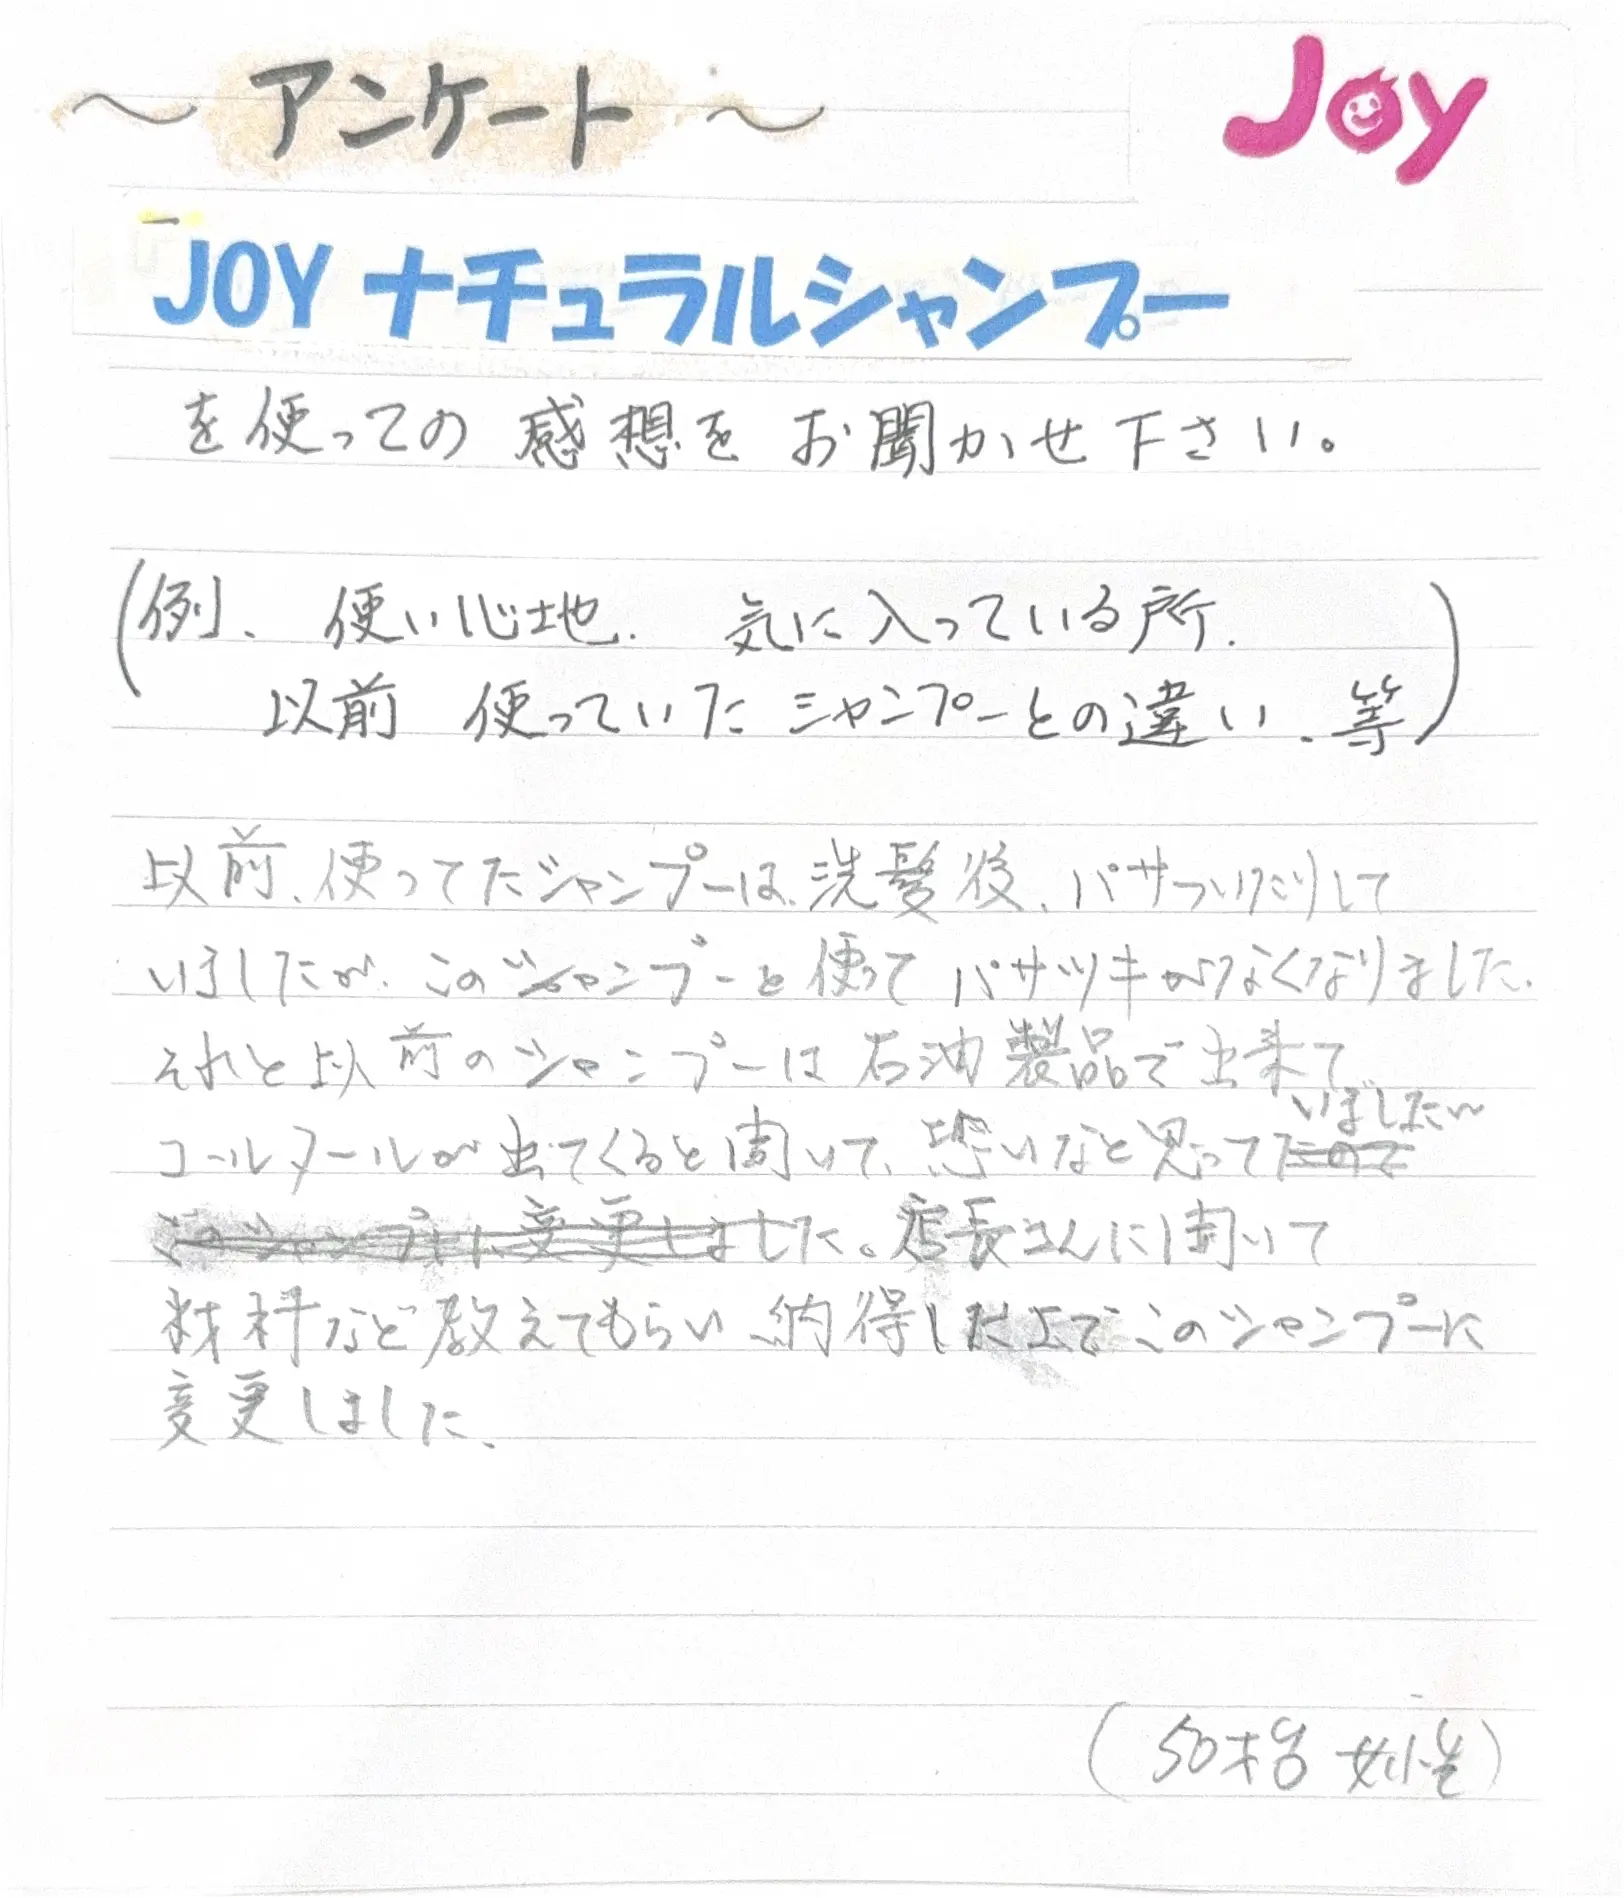 ～アンケート～
Joy
JOYナチュラルシャンプー
を使っての 感想を お聞かせ下さい。
(例. 使い心地. 気に入っている所.
以前 使っていた シャンプーとの違い. 等)
以前、使ってたシャンプーは、洗髪後、パサついたりして
いましたが、このシャンプーを使って パサツキがなくなりました.
それと以前のシャンプーは石油製品で出来て
いました〜
コールタールが出てくると聞いて、恐いなと思ってたので
このシャンプーに変更しました。店長さんに聞いて
材料など教えてもらい 納得した上で このシャンプーに
変更しました、
(50才台 女性)